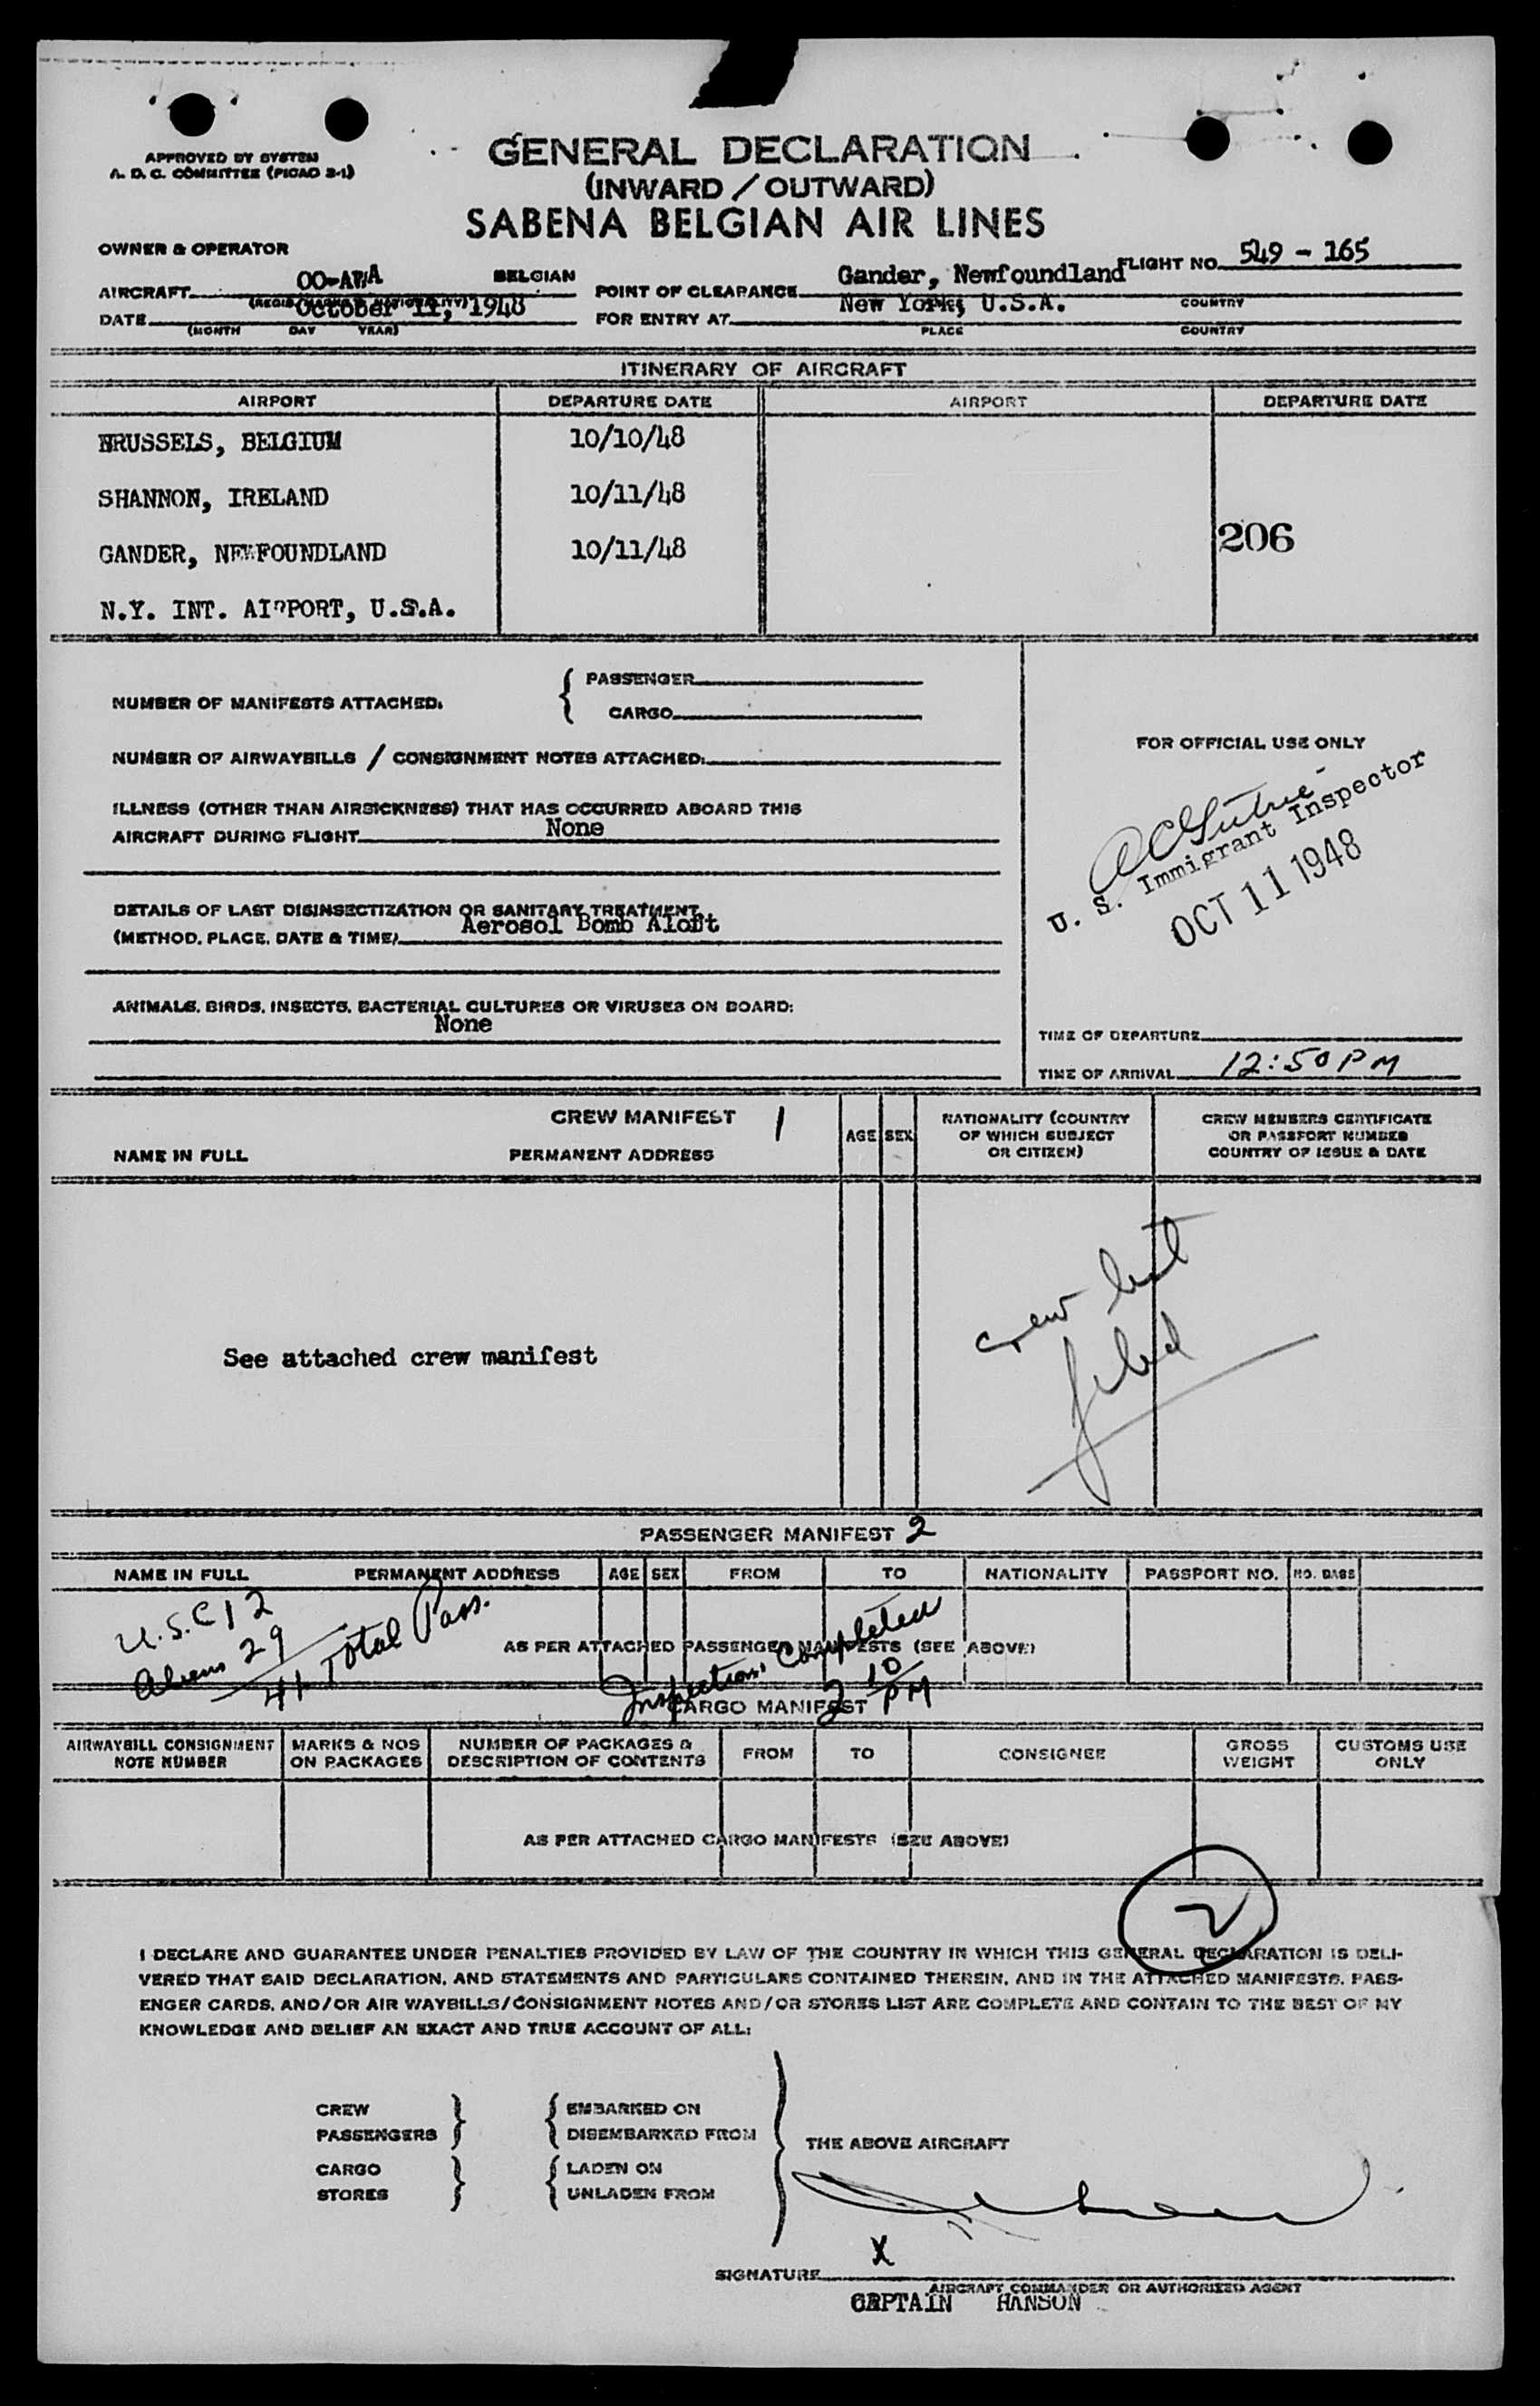 APPROVED BY SYSTEM
A. D. C. COMMITTEE (PICAO 2-1)
GENERAL DECLARATION
(INWARD / OUTWARD)
SABENA BELGIAN AIR LINES
OWNER & OPERATOR
FLIGHT NO. 549 - 165
AIRCRAFT BELGIAN
POINT OF CLEARANCE Gander, Newfoundland
COUNTRY
DATE October 11, 1948
(MONTH DAY YEAR)
FOR ENTRY AT New York, U.S.A.
PLACE COUNTRY
ITINERARY OF AIRCRAFT
AIRPORT DEPARTURE DATE AIRPORT DEPARTURE DATE
BRUSSELS, BELGIUM 10/10/48
SHANNON, IRELAND 10/11/48
GANDER, NEWFOUNDLAND 10/11/48
206
N.Y. INT. AIRPORT, U.S.A.
NUMBER OF MANIFESTS ATTACHED.
PASSENGER
CARGO
NUMBER OF AIRWAYBILLS / CONSIGNMENT NOTES ATTACHED:
ILLNESS (OTHER THAN AIRSICKNESS) THAT HAS OCCURRED ABOARD THIS
AIRCRAFT DURING FLIGHT None
DETAILS OF LAST DISINSECTIZATION OR SANITARY TREATMENT
(METHOD, PLACE, DATE & TIME) Aerosol Bomb Aloft
ANIMALS, BIRDS, INSECTS, BACTERIAL CULTURES OR VIRUSES ON BOARD:
None
FOR OFFICIAL USE ONLY
U. S. Immigrant Inspector
OCT 11 1948
TIME OF DEPARTURE
TIME OF ARRIVAL 12:50 PM
CREW MANIFEST 1
NAME IN FULL PERMANENT ADDRESS
AGE SEX
NATIONALITY (COUNTRY
OF WHICH SUBJECT
OR CITIZEN)
CREW MEMBERS CERTIFICATE
OR PASSPORT NUMBER
COUNTRY OF ISSUE & DATE
See attached crew manifest
crew list
filed
PASSENGER MANIFEST 2
NAME IN FULL PERMANENT ADDRESS AGE SEX FROM TO NATIONALITY PASSPORT NO. NO. BAGS
U.S.C 12
Aliens 29
41 Total Pass.
AS PER ATTACHED PASSENGER MANIFESTS (SEE ABOVE)
Inspection Completed
2 10 PM
CARGO MANIFEST
AIRWAYBILL CONSIGNMENT
NOTE NUMBER
MARKS & NOS
ON PACKAGES
NUMBER OF PACKAGES &
DESCRIPTION OF CONTENTS
FROM TO CONSIGNEE
GROSS
WEIGHT
CUSTOMS USE
ONLY
AS PER ATTACHED CARGO MANIFESTS (SEE ABOVE)
2
I DECLARE AND GUARANTEE UNDER PENALTIES PROVIDED BY LAW OF THE COUNTRY IN WHICH THIS GENERAL DECLARATION IS DELI-
VERED THAT SAID DECLARATION, AND STATEMENTS AND PARTICULARS CONTAINED THEREIN, AND IN THE ATTACHED MANIFESTS, PASS-
ENGER CARDS, AND/OR AIR WAYBILLS/CONSIGNMENT NOTES AND/OR STORES LIST ARE COMPLETE AND CONTAIN TO THE BEST OF MY
KNOWLEDGE AND BELIEF AN EXACT AND TRUE ACCOUNT OF ALL:
CREW
PASSENGERS
EMBARKED ON
DISEMBARKED FROM
THE ABOVE AIRCRAFT
CARGO
STORES
LADEN ON
UNLADEN FROM
X
SIGNATURE
AIRCRAFT COMMANDER OR AUTHORIZED AGENT
CAPTAIN HANSON